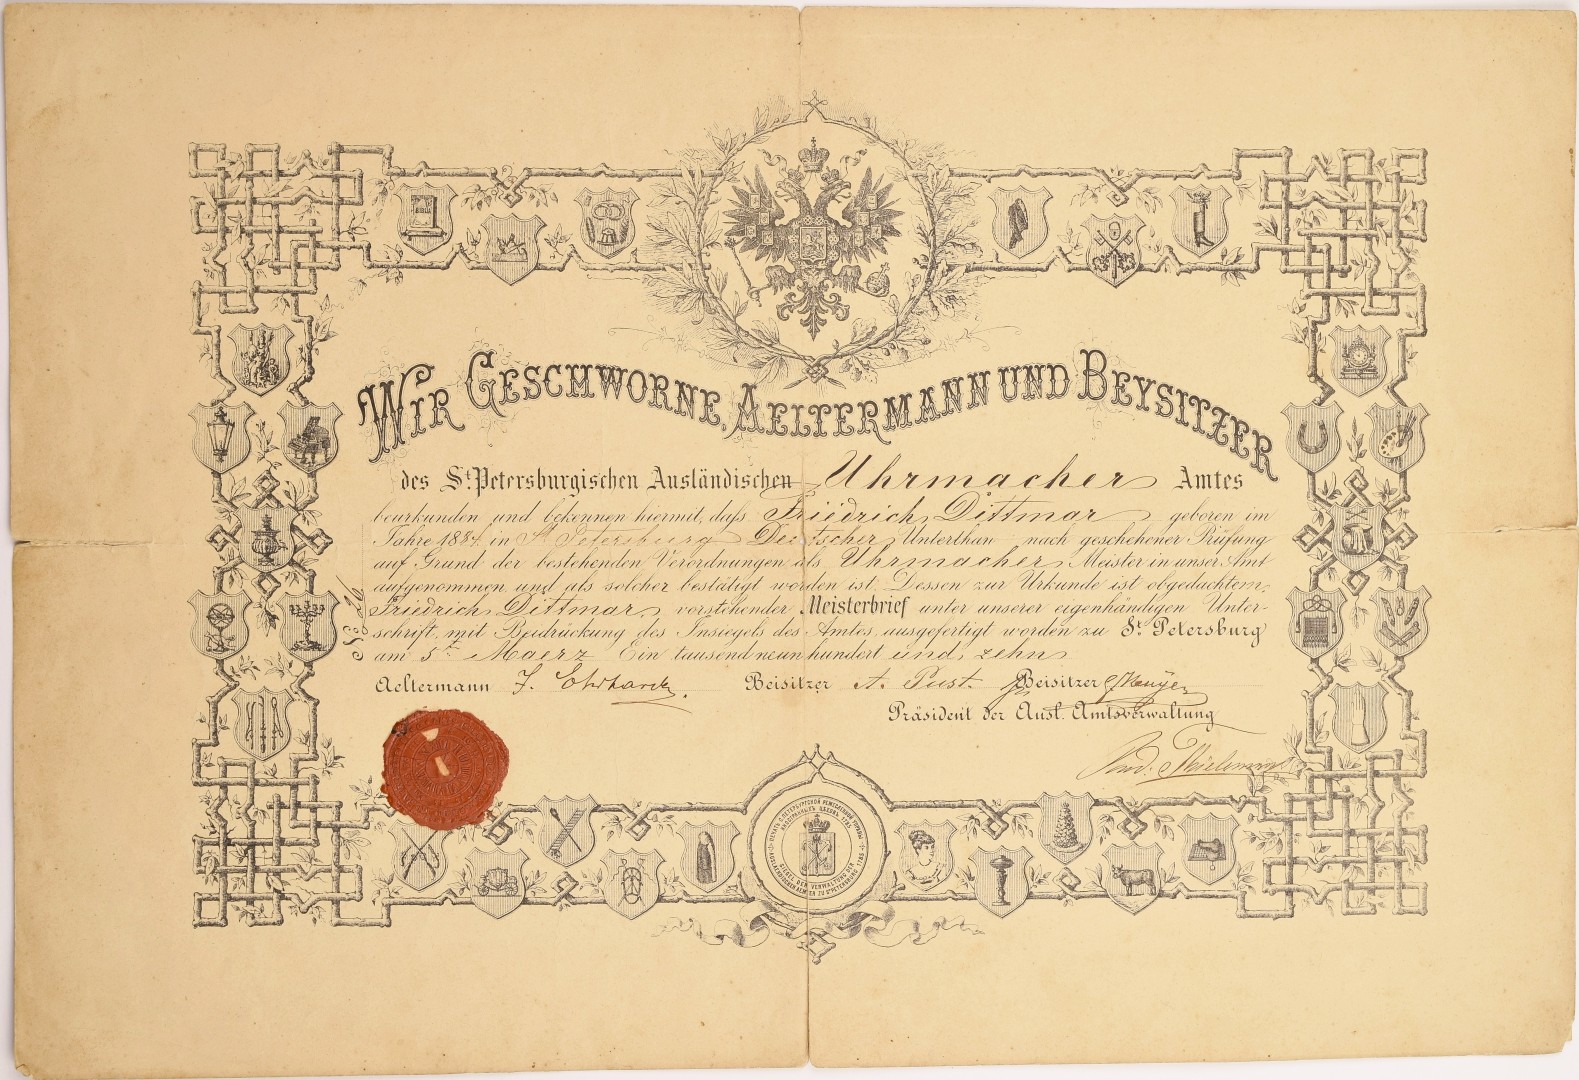 BIBLIA
WIR GESCHWORNE, AELTERMANN UND BEYSITZER
des St. Petersburgischen Ausländischen Uhrmacher Amtes
beurkunden und bekennen hiermit, daß Friedrich Dittmar geboren im
Jahre 1884 in St. Petersburg Deutscher Unterthan nach geschehener Prüfung
auf Grund der bestehenden Verordnungen als Uhrmacher Meister in unser Amt
aufgenommen und als solcher bestätigt worden ist. Dessen zur Urkunde ist obgedachtem
Friedrich Dittmar vorstehender Meisterbrief unter unserer eigenhändigen Unter-
schrift, mit Beidrückung des Insiegels des Amtes, ausgefertigt worden zu St. Petersburg
am 5ten Maerz Ein tausend neunhundert und zehn
Aeltermann Beisitzer A. Pust. Beisitzer
Präsident der Ausl. Amtsverwaltung
ПЕЧАТЬ С. ПЕТЕРБУРГСКОЙ РЕМЕСЛЕННОЙ УПРАВЫ
ИНОСТРАННЫХЪ ЦЕХОВЪ 1785
SIEGEL DER VERWALTUNG DER
AUSLAENDISCHEN AEMTER ZU ST PETERSBURG 1785